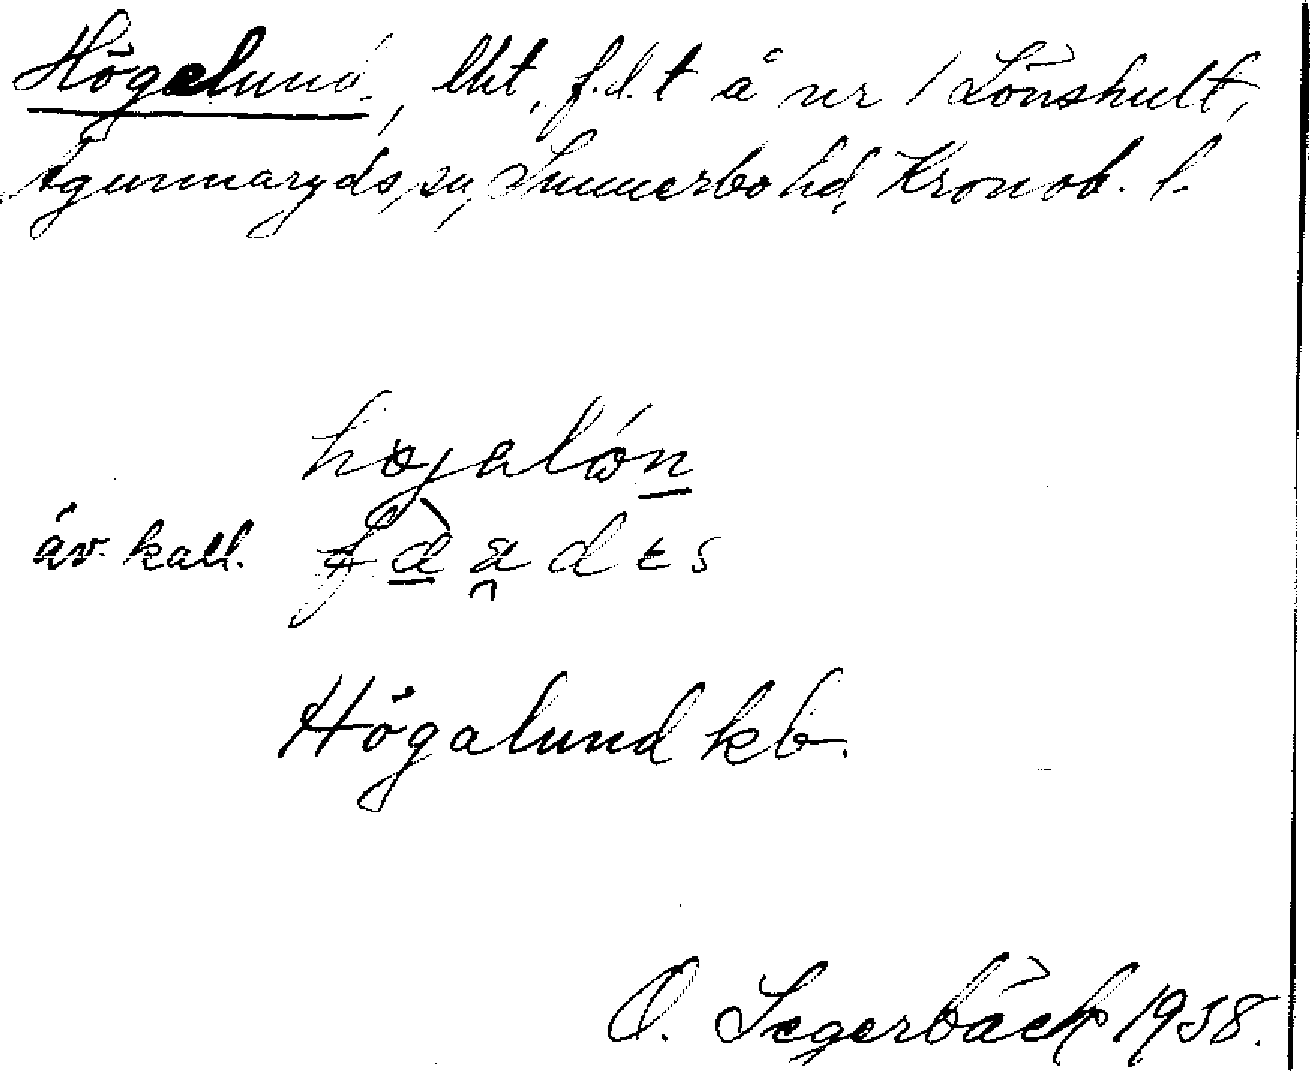 Högelund, lht, f.d.t å nr 1 Lönshult,
Agunnaryds sn, Sunnerbo hd, Kronob. l.
högalón
äv. kall.
Högalund kb.
O. Segerbäck 1938.